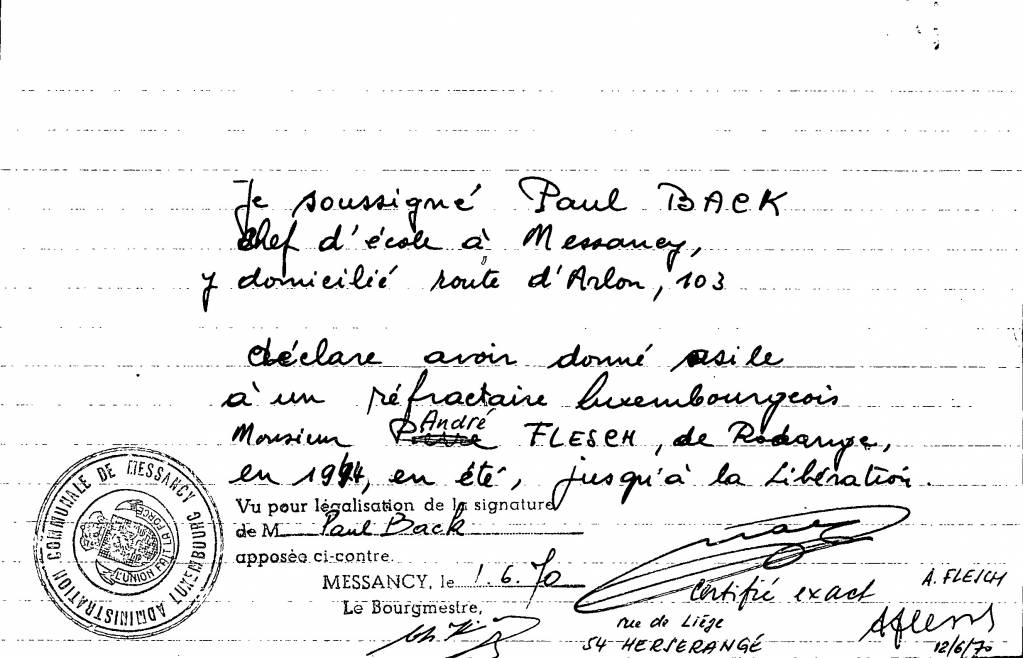 Je soussigné Paul BACK
chef d'école à Messancy,
y domicilié route d'Arlon, 103
déclare avoir donné asile
à un réfractaire luxembourgeois
André
Monsieur Pierre FLESCH, de Rodange,
en 1944, en été, jusqu'à la Libération.
Vu pour légalisation de la signature
de M Paul Back
apposée ci-contre.
MESSANCY, le 1.6.70
Le Bourgmestre,
ADMINISTRATION COMMUNALE DE MESSANCY LUXEMBOURG
L'UNION FAIT LA FORCE
Certifié exact
rue de Liège
54 HERSERANGE
A. FLESCH
AFlesch
12/6/70